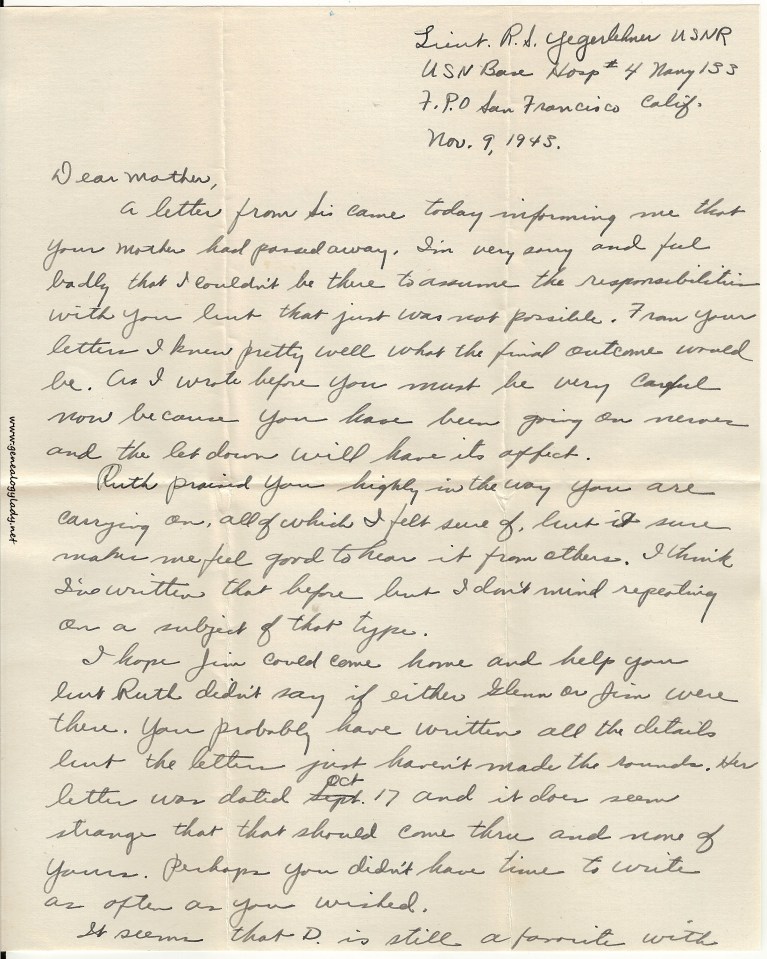 Lieut. R.S. Yegerlehner USNR
USN Base Hosp # 4 Navy 133
F.P.O San Francisco Calif.
Nov. 9, 1943.
Dear Mother,
A letter from Sis came today informing me that
your mother had passed away. I'm very sorry and feel
badly that I couldn't be there to assume the responsibilities
with you but that just was not possible. From your
letters I knew pretty well what the final outcome would
be. As I wrote before you must be very careful
now because you have been going on nerves
and the let down will have its affect.
Ruth praised you highly in the way you are
carrying on, all of which I felt sure of, but it sure
makes me feel good to hear it from others. I think
I've written that before but I don't mind repeating
on a subject of that type.
I hope Jim could come home and help you
but Ruth didn't say if either Glenn or Jim were
there. You probably have written all the details
but the letters just haven't made the rounds. Her
letter was dated Sept. Oct 17 and it does seem
strange that that should come thru and none of
yours. Perhaps you didn't have time to write
as often as you wished.
It seems that D. is still a favorite with
www.genealogylady.net